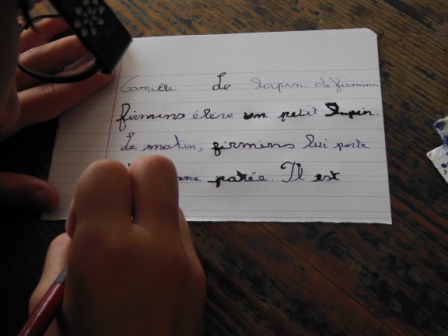 Camille Le lapin de firmin
firmins élève un petit lapin.
Le matin, firmins lui porte
patée. Il est